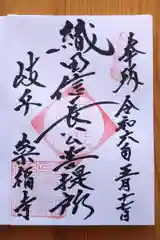 奉拝 令和六年三月十七日
織田信長公菩提所
岐阜 崇福寺